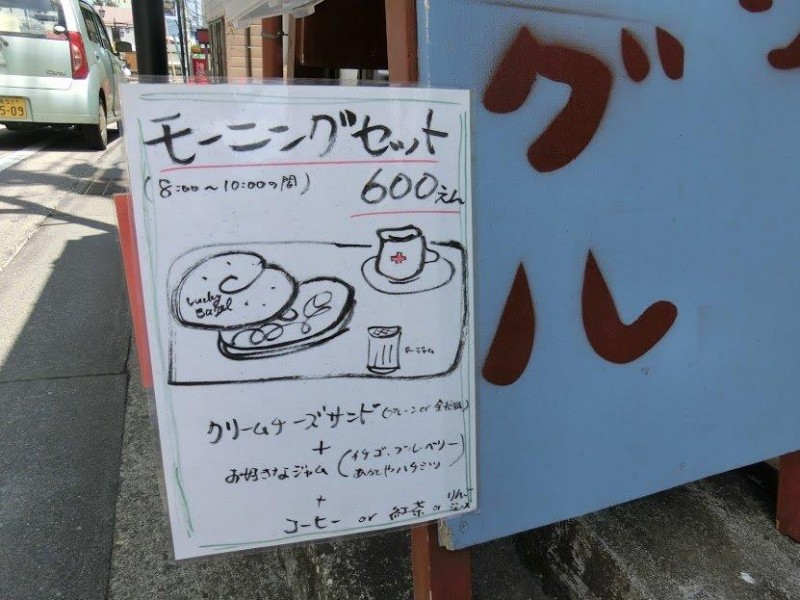 モーニングセット
(8:00〜10:00の間)
600えん
Lucky
Bagel
クリームチーズサンド(プレーン or 全粒粉)
+
お好きなジャム(イチゴ、ブルーベリー
あるいやハチミツ)
+
コーヒー or 紅茶 or りんご
ジュース
グ
ル
5-09